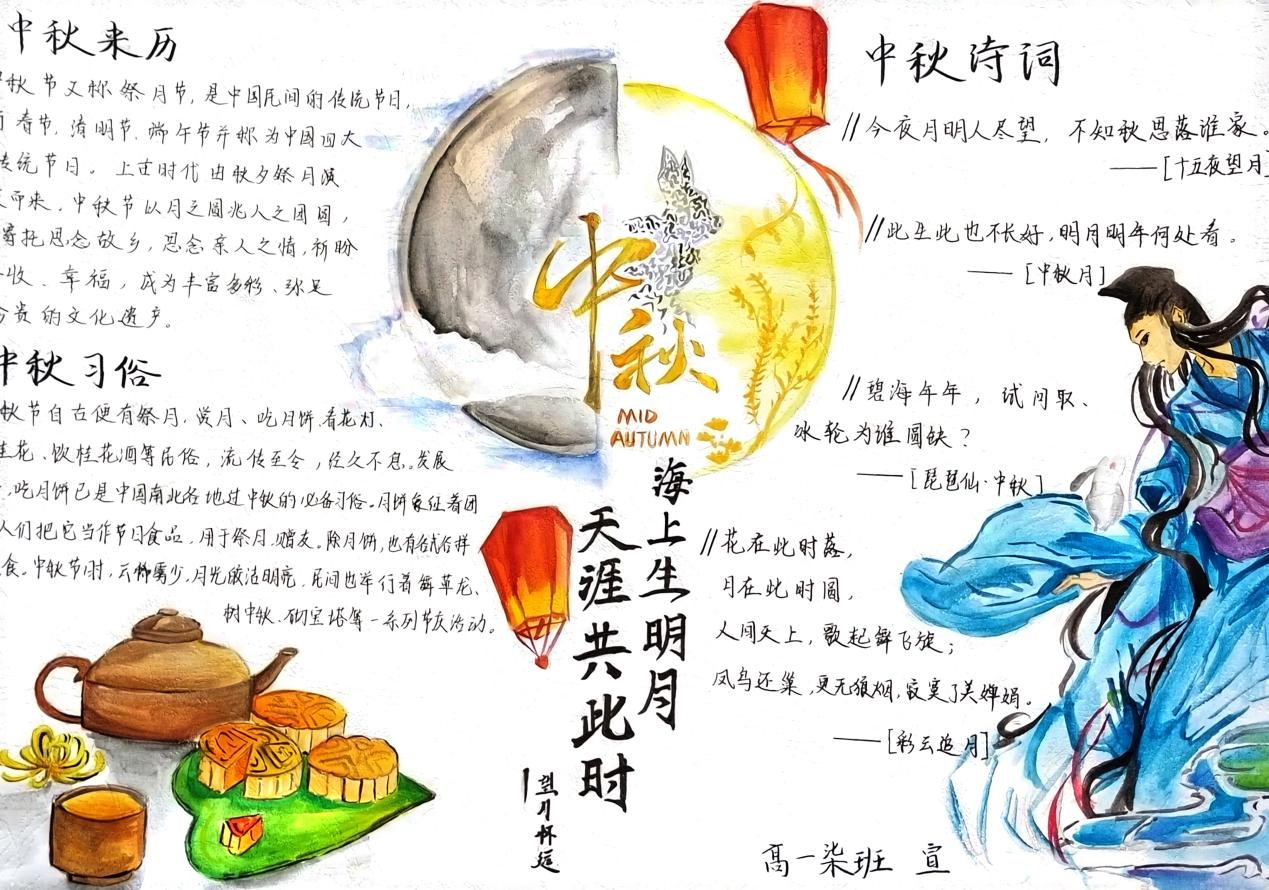 中秋来历
中秋节又称祭月节，是中国民间的传统节日，
春节、清明节、端午节并称为中国四大
传统节日。上古时代由秋夕祭月演
而来。中秋节以月之圆兆人之团圆，
寄托思念故乡，思念亲人之情，祈盼
收、幸福，成为丰富多彩、弥足
贵的文化遗产。
中秋习俗
秋节自古便有祭月、赏月、吃月饼、看花灯、
桂花、饮桂花酒等民俗，流传至今，经久不息。发展
，吃月饼已是中国南北各地过中秋的必备习俗。月饼象征着团
人们把它当作节日食品，用于祭月、赠友。除月饼，也有各式各样
食。中秋节时，云雾少，月光皎洁明亮，民间也举行着舞草龙、
树中秋、砌宝塔等一系列节庆活动。
中秋
MID
AUTUMN
海上生明月
天涯共此时
望月怀远
中秋诗词
//今夜月明人尽望，不知秋思落谁家。
——[十五夜望月]
//此生此也不长好，明月明年何处看。
——[中秋月]
//碧海年年，试问取、
冰轮为谁圆缺？
——[琵琶仙·中秋]
//花在此时落，
月在此时圆，
人间天上，歌起舞飞旋；
凤鸟还巢，更无狼烟，寂寞了美婵娟。
——[彩云追月]
高一柒班 宣